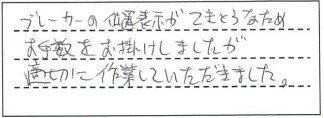 ブレーカーの位置表示がてきとうなため
お手数をお掛けしましたが
適切に作業していただきました。